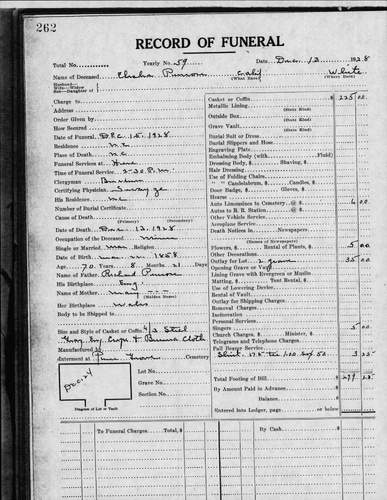 262
RECORD OF FUNERAL
Total No. Yearly No. 59 Date Dec. 13 1928
Name of Deceased Elisha Calif White
(What Race) (Where Born)
Husband—
Wife—Widow
Son—Daughter of
Charge to
Address
Order Given by
How Secured
Date of Funeral Dec. 15. 1928
Residence N.C.
Place of Death N.C.
Funeral Services at Home
Time of Service 2-30 P.M.
Clergyman
Certifying Physician
His Residence N.C.
Number of Burial Certificate
Cause of Death
(Primary) (Secondary)
Date of Death Dec. 13. 1928
Occupation of the Deceased Miner
Single or Married Mar Religion
Date of Birth 1858
Age 70 Years 8 Months 21 Days
Name of Father Richard
His Birthplace Eng.
Name of Mother Mary
(Maiden Name)
Her Birthplace Wales
Body to be Shipped to
Size and Style of Casket or Coffin 6/3 Steel
Gray Crepe & Cloth
Manufactured by
Interment at Pine Grove Cemetery
Lot No.
Grave No.
Section No.
Diagram of Lot or Vault
Casket or Coffin $ 225 00
Metallic Lining
(State Kind)
Outside Box
(State Kind)
Grave Vault
(State Kind)
Burial Suit or Dress
Burial Slippers and Hose
Engraving Plate
Embalming Body (with Fluid)
Dressing Body, $ Shaving, $
Hair Dressing
Use of Folding Chairs
" " Candelabrum, $ Candles, $
Door Badge, $ Gloves, $
Hearse
Auto Limousines to Cemetery @ $ 6 00
Autos to R. R. Station @ $
Other Vehicle Service
Aeroplane Service
Death Notices in Newspapers
(Names of Newspapers)
Flowers, $ Rental of Plants, $ 5 00
Other Decorations
Outlay for Lot 2 grave 35 00
Opening Grave or Vault
Lining Grave with Evergreen or Muslin
Matting, $ Tent Rental, $
Use of Lowering Device
Rental of Vault
Outlay for Shipping Charges
Removal Charges
Incineration
Personal Services
Singers 5 00
Church Charges, $ Minister, $
Telegrams and Telephone Charges
Pall Bearer Service
Shirt 1.75 tie 1.00 50 3 25
Total Footing of Bill $ 279 25
By Amount Paid in Advance
Balance $
Entered into Ledger, page or below $
To Funeral Charges Total, $ By Cash $